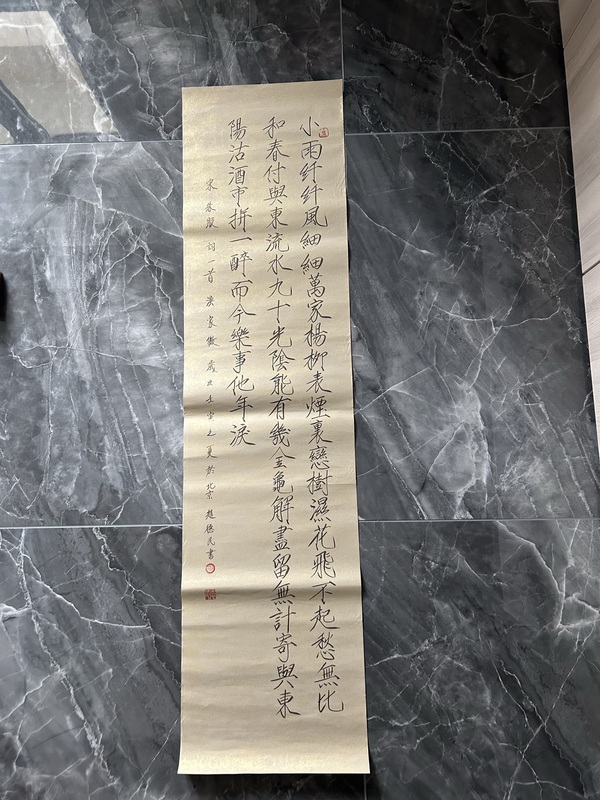 小雨纤纤風細細萬家楊柳青煙裏戀樹濕花飛不起愁無比
和春付與東流水九十光陰能有幾金龜解盡留無計寄與東
陽沽酒市拼一醉而今樂事他年淚
宋朱服詞一首漁家傲歲次壬寅之夏於北京趙德民書